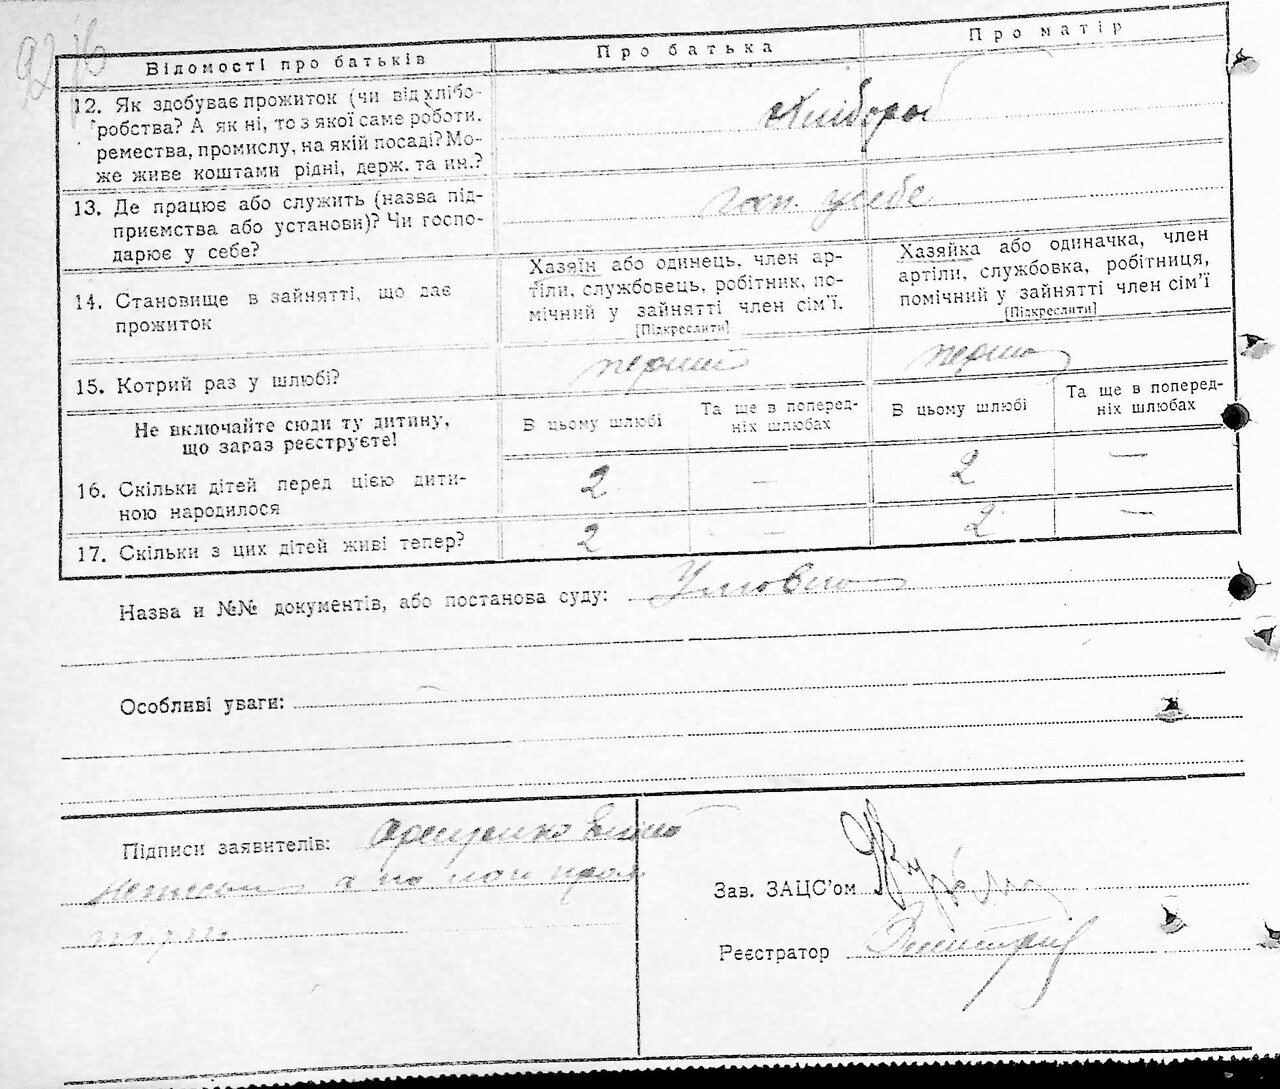 Відомості про батьків
Про батька
Про матір
12. Як здобуває прожиток (чи від хлібо-
робства? А як ні, то з якої саме роботи,
ремества, промислу, на якій посаді? Мо-
же живе коштами рідні, держ. та ин.?
Хлібороб
13. Де працює або служить (назва під-
приємства або установи)? Чи госпо-
дарює у себе?
госп. у себе
14. Становище в зайнятті, що дає
прожиток
Хазяїн або одинець, член ар-
тіли, службовець, робітник, по-
мічний у зайнятті член сім'ї.
[Підкреслити]
Хазяйка або одиначка, член
артіли, службовка, робітниця,
помічний у зайнятті член сім'ї
[Підкреслити]
15. Котрий раз у шлюбі?
перший
перша
Не включайте сюди ту дитину,
що зараз реєструєте!
В цьому шлюбі
Та ще в поперед-
ніх шлюбах
В цьому шлюбі
Та ще в поперед-
ніх шлюбах
16. Скільки дітей перед цією дити-
ною народилося
2 — 2 —
17. Скільки з цих дітей живі тепер?
2 — 2 —
Назва и №№ документів, або постанова суду:
Особливі уваги:
Підписи заявителів:
Зав. ЗАЦС'ом
Реєстратор